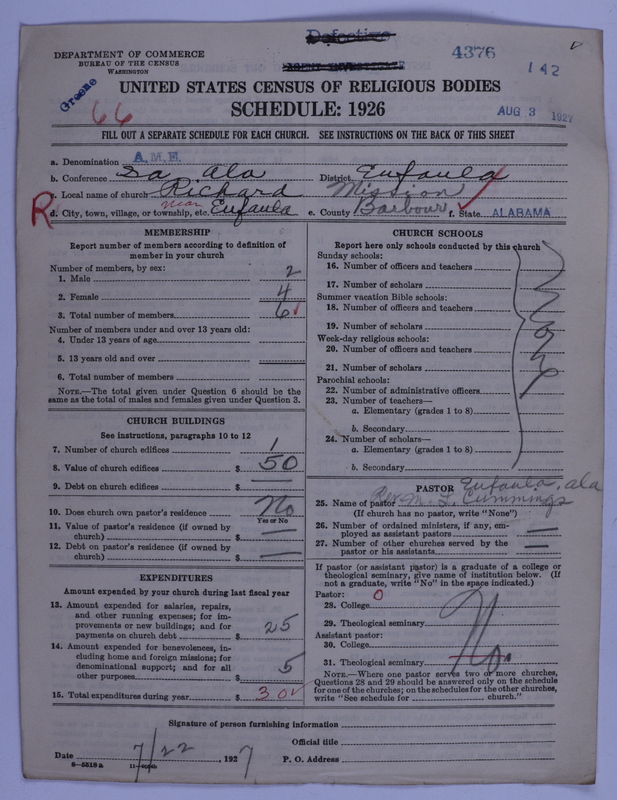 Defective
DEPARTMENT OF COMMERCE
BUREAU OF THE CENSUS
WASHINGTON
4376
142
Greene
66
UNITED STATES CENSUS OF RELIGIOUS BODIES
SCHEDULE: 1926
AUG 3 1927
FILL OUT A SEPARATE SCHEDULE FOR EACH CHURCH. SEE INSTRUCTIONS ON THE BACK OF THIS SHEET
a. Denomination A.M.E.
b. Conference So. Ala District Eufaula
c. Local name of church Richard Mission
R d. City, town, village, or township, etc. near Eufaula e. County Barbour f. State ALABAMA
MEMBERSHIP
Report number of members according to definition of
member in your church
Number of members, by sex:
1. Male 2
2. Female 4
3. Total number of members 6
Number of members under and over 13 years old:
4. Under 13 years of age
5. 13 years old and over
6. Total number of members
NOTE.—The total given under Question 6 should be the
same as the total of males and females given under Question 3.
CHURCH BUILDINGS
See instructions, paragraphs 10 to 12
7. Number of church edifices 1
8. Value of church edifices $ 50
9. Debt on church edifices $ —
10. Does church own pastor's residence No
Yes or No
11. Value of pastor's residence (if owned by
church) $ —
12. Debt on pastor's residence (if owned by
church) $ —
EXPENDITURES
Amount expended by your church during last fiscal year
13. Amount expended for salaries, repairs,
and other running expenses; for im-
provements or new buildings; and for
payments on church debt $ 25
14. Amount expended for benevolences, in-
cluding home and foreign missions; for
denominational support; and for all
other purposes $ 5
15. Total expenditures during year $ 30
CHURCH SCHOOLS
Report here only schools conducted by this church
Sunday schools:
16. Number of officers and teachers
17. Number of scholars
Summer vacation Bible schools:
18. Number of officers and teachers
19. Number of scholars
Week-day religious schools:
20. Number of officers and teachers
21. Number of scholars
Parochial schools:
22. Number of administrative officers
23. Number of teachers—
a. Elementary (grades 1 to 8)
b. Secondary
24. Number of scholars—
a. Elementary (grades 1 to 8)
b. Secondary
None
PASTOR Eufaula, Ala
25. Name of pastor Rev M. L. Cummings
(If church has no pastor, write "None")
26. Number of ordained ministers, if any, em-
ployed as assistant pastors —
27. Number of other churches served by the
pastor or his assistants —
If pastor (or assistant pastor) is a graduate of a college or
theological seminary, give name of institution below. (If
not a graduate, write "No" in the space indicated.)
Pastor: 0
28. College
29. Theological seminary
Assistant pastor:
30. College
31. Theological seminary
No
NOTE.—Where one pastor serves two or more churches,
Questions 28 and 29 should be answered only on the schedule
for one of the churches; on the schedules for the other churches,
write "See schedule for church."
Signature of person furnishing information
Official title
Date 7/22, 1927 P. O. Address
8—5518a